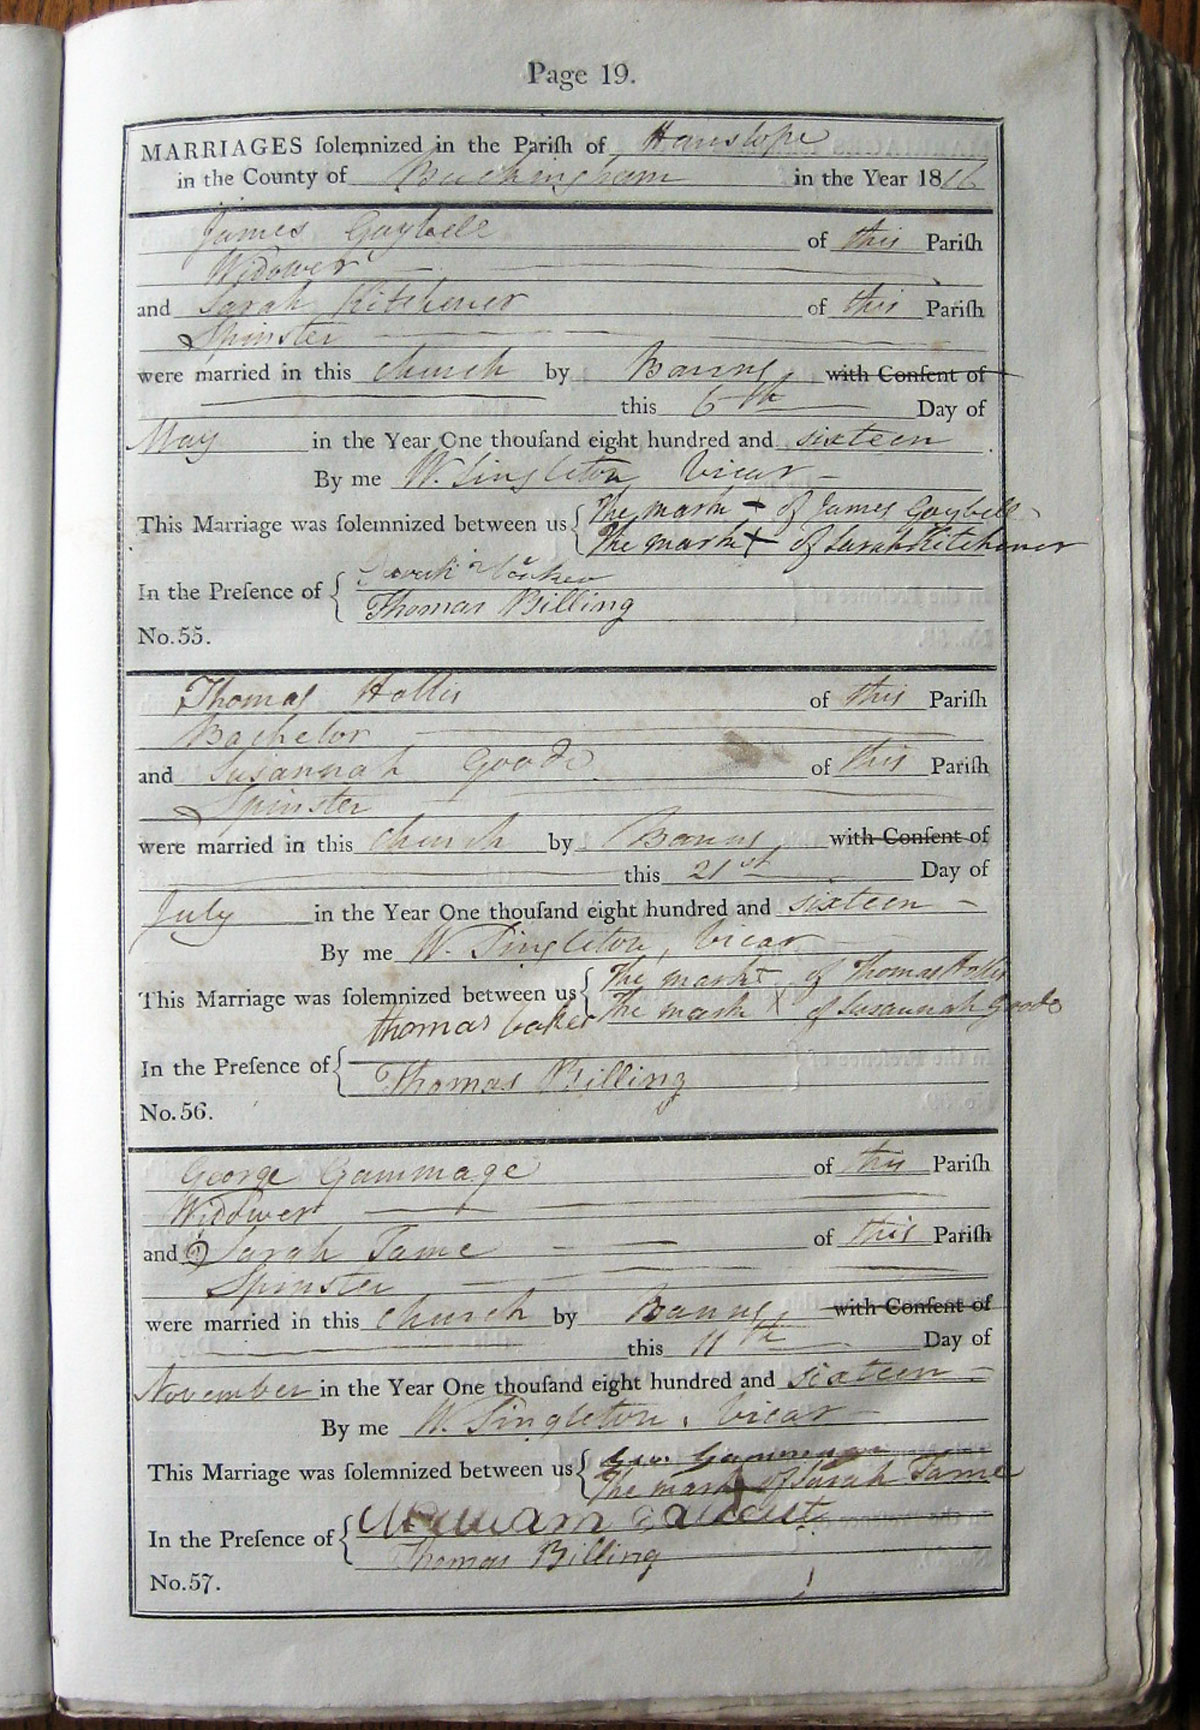 Page 19.
MARRIAGES ſolemnized in the Pariſh of Hanslope
in the County of Buckingham in the Year 1816
James Gaybell of this Pariſh
Widower
and Sarah Kitchener of this Pariſh
Spinster
were married in this church by Banns with Conſent of
this 6th Day of
May in the Year One thouſand eight hundred and sixteen
By me W. Singleton Vicar
This Marriage was ſolemnized between us { The mark + of James Gaybell
The mark + of Sarah Kitchener
In the Preſence of {
Thomas Billing
No. 55.
Thomas Hollis of this Pariſh
Bachelor
and Susannah Goode of this Pariſh
Spinster
were married in this church by Banns with Conſent of
this 21st Day of
July in the Year One thouſand eight hundred and sixteen
By me W. Singleton, Vicar
This Marriage was ſolemnized between us { The mark + of Thomas Hollis
The mark X of Susannah Goode
thomas baker
In the Preſence of {
Thomas Billing
No. 56.
George Gammage of this Pariſh
Widower
and Sarah Tame of this Pariſh
Spinster
were married in this church by Banns with Conſent of
this 11th Day of
November in the Year One thouſand eight hundred and sixteen
By me W. Singleton, Vicar
This Marriage was ſolemnized between us { Geo. Gammage
The mark + of Sarah Tame
In the Preſence of { William
Thomas Billing
No. 57.